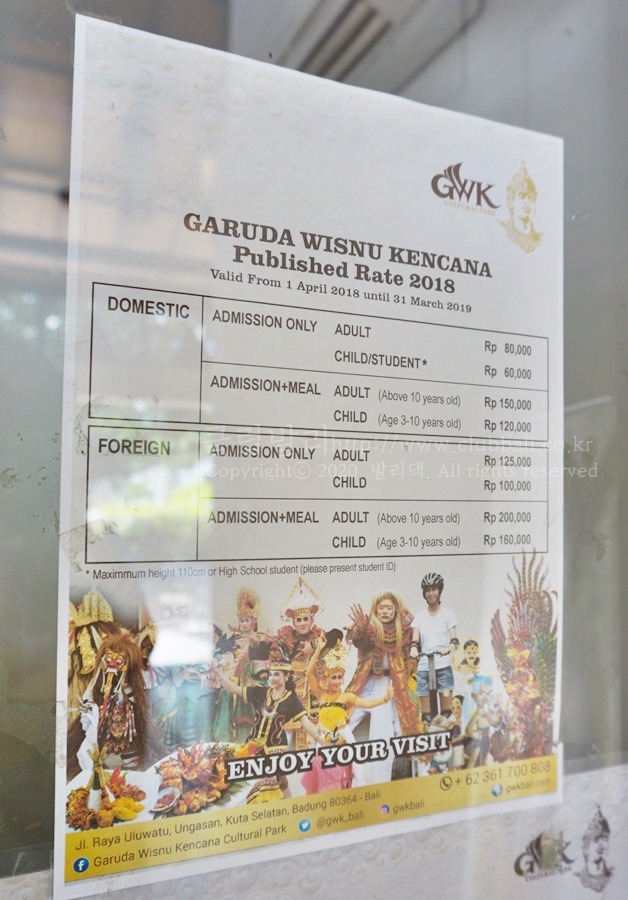 GWK
CULTURAL PARK
GARUDA WISNU KENCANA
Published Rate 2018
Valid From 1 April 2018 until 31 March 2019
DOMESTIC ADMISSION ONLY ADULT Rp 80,000
CHILD/STUDENT* Rp 60,000
ADMISSION+MEAL ADULT (Above 10 years old) Rp 150,000
CHILD (Age 3-10 years old) Rp 120,000
클럽발리 http://www.clubbali.co.kr
FOREIGN ADMISSION ONLY ADULT Rp 125,000
Copyrightⓒ 2020. 발리댁. All rights reserved
CHILD Rp 100,000
ADMISSION+MEAL ADULT (Above 10 years old) Rp 200,000
CHILD (Age 3-10 years old) Rp 160,000
* Maximmum height 110cm or High School student (please present student ID)
ENJOY YOUR VISIT
Jl. Raya Uluwatu, Ungasan, Kuta Selatan, Badung 80364 - Bali
+ 62 361 700 808
Garuda Wisnu Kencana Cultural Park @gwk_bali gwkbali gwkbali.com
GWK
CULTURAL PARK